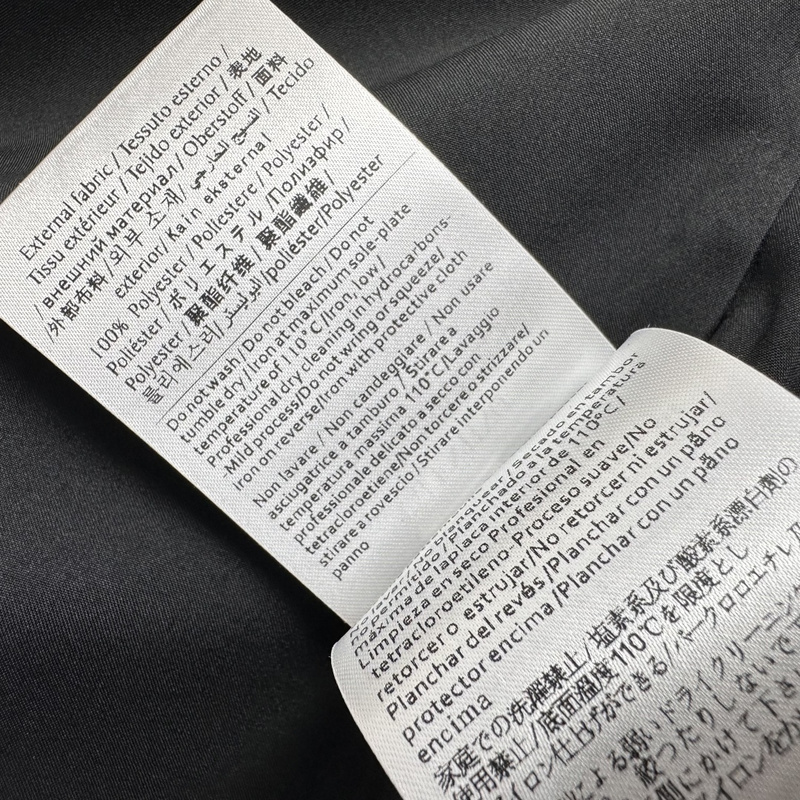 External fabric / Tessuto esterno /
Tissu extérieur / Tejido exterior / 表地
/ внешний материал / Oberstoff / 面料
/外部布料 / 외부 소재 / النسيج الخارجي / Tecido
exterior / Kain eksternal
100% Polyester / Poliestere / Polyester /
Poliéster / ポリエステル / Полиэфир /
Polyester / 聚酯纤维 / 聚酯纖維 /
폴리에스레 / البوليستر / poliéster/Polyester
Do not wash / Do not bleach / Do not
tumble dry / Iron at maximum sole-plate
temperature of 110°C / Iron, low /
Professional dry cleaning in hydrocarbons-
Mild process/Do not wring or squeeze/
Iron on reverse/Iron with protective cloth
Non lavare / Non candeggiare / Non usare
asciugatrice a tamburo / Stirare a
temperatura massima 110°C/Lavaggio
professionale delicato a secco con
tetracloroetiene/Non torcere o strizzare/
stirare a rovescio / Stirare interponendo un
panno
Secado en tambor
no permitido / Planchado a temperatura
máxima de la placa interior de 110°C/
Limpieza en seco Profesional en
tetracloroetileno-Proceso suave/No
retorcer o estrujar/No retorcer ni estrujar/
Planchar del revés /Planchar con un paño
protector encima /Planchar con un paño
encima
家庭での洗濯禁止/塩素系及び酸素系漂白剤の
使用禁止/底面温度110℃を限度とし
アイロン仕上げができる/パークロロエチレン及
による弱いドライクリーニング
絞ったりしないで下
側にかけて下さ